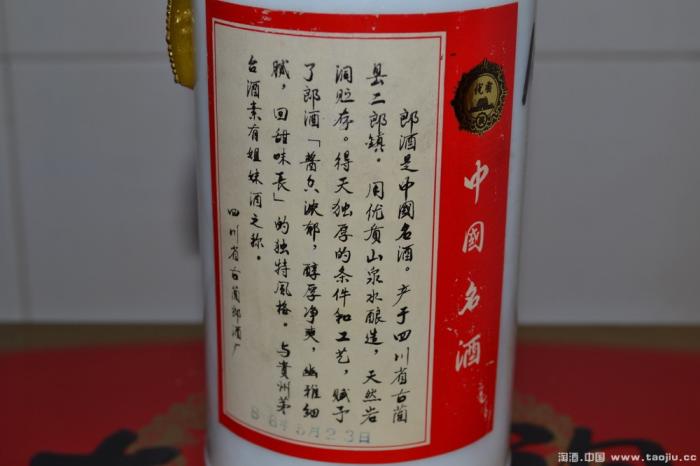 优省
中國名酒
郎酒是中國名酒。产于四川省古蔺
县二郎鎮。用优质山泉水酿造，天然岩
洞贮存。得天独厚的条件和工艺，赋予
了郎酒「酱香浓郁，醇厚净爽，幽雅细
腻，回甜味長」的独特風格。与貴州茅
台酒素有姐妹酒之称。
四川省古蔺郎酒厂
88年5月23日
淘酒.中国 www.taojiu.cc